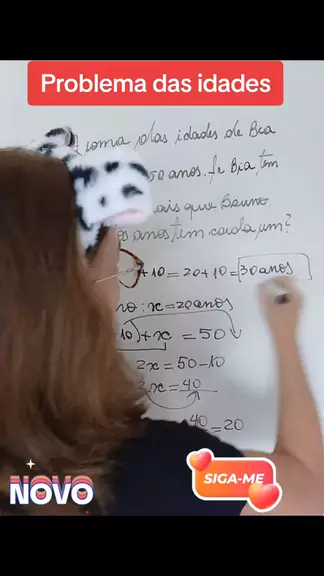 Problema das idades
soma das idades de Bia
50 anos. Se Bia tem
que Bruno
anos tem cada um?
+10 = 20+10 = 30 anos
: x = 20 anos
10) + x = 50
2x = 50-10
2x = 40
40 = 20
NOVO
SIGA-ME